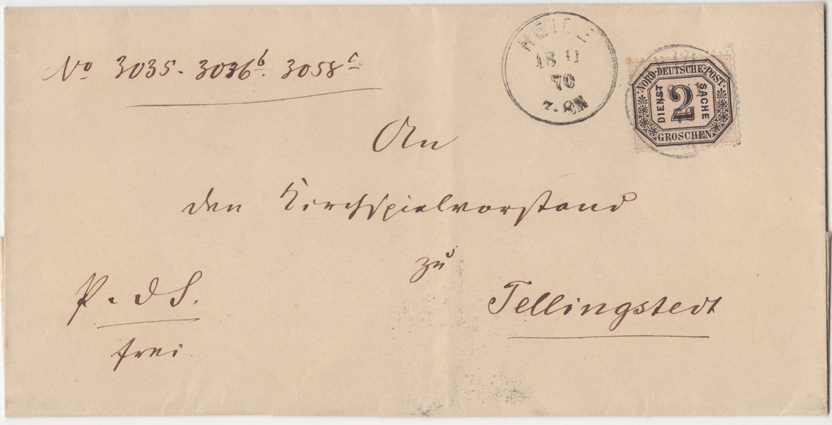 No 3035. 3036b. 3058c
HEIDE
18 11
70
7-8N
NORD-DEUTSCHE-POST
DIENST 2 SACHE
GROSCHEN
An
den Kirchspielvorstand
zu
Tellingstedt
P. d S.
frei